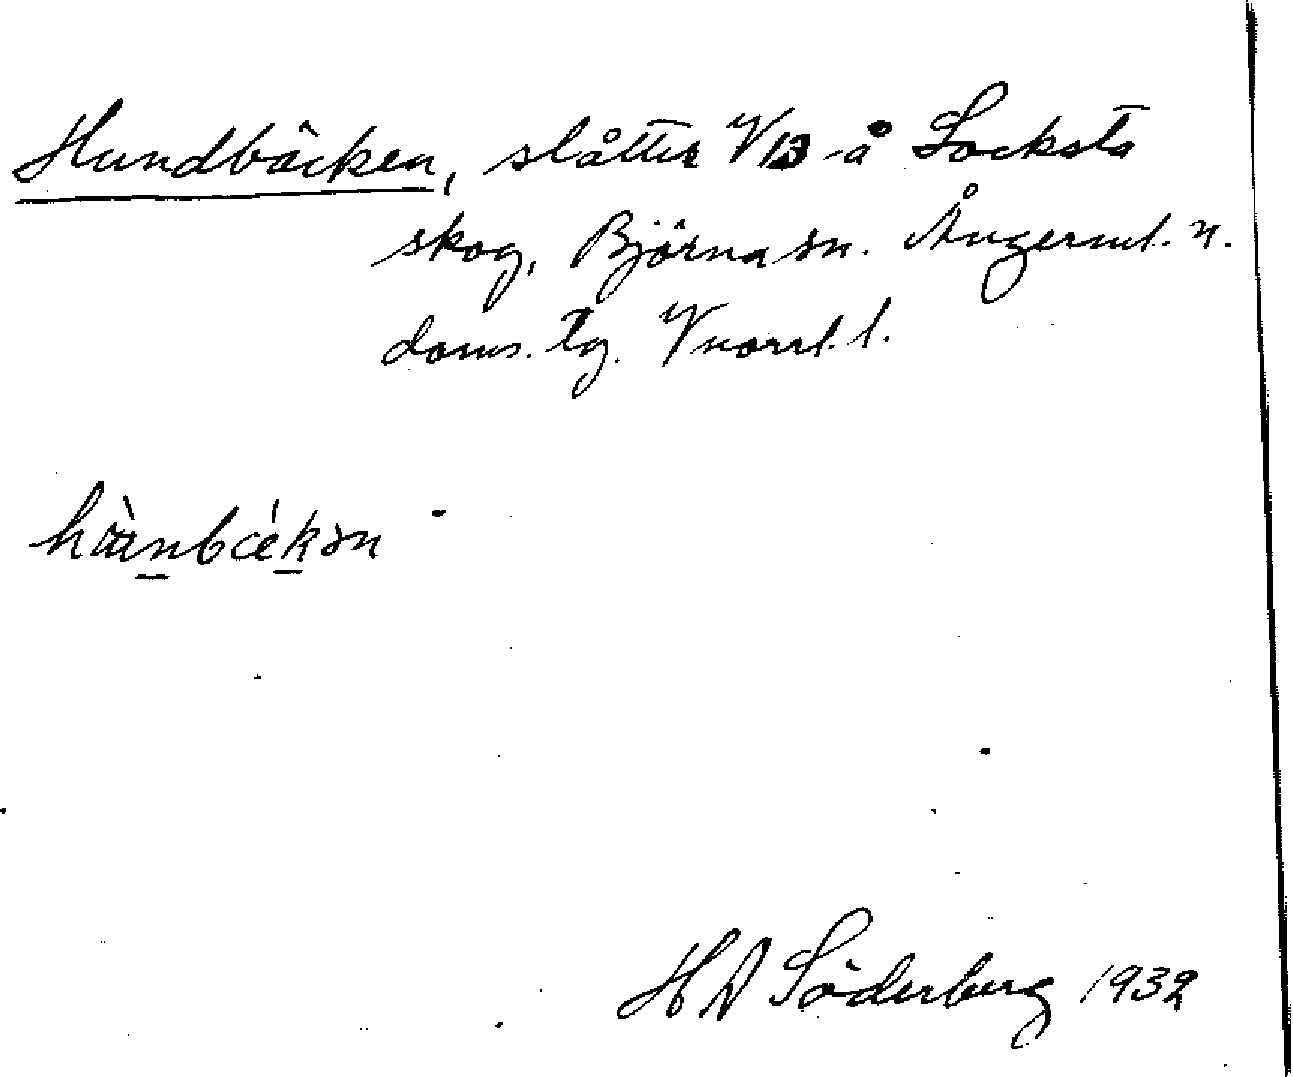 Hundbäcken, slåtter V13 å Locksta
skog, Björna sn. Ångerml. n.
doms. tg. Vnorrl. l.
hùnbǽkən
H A Söderberg 1932